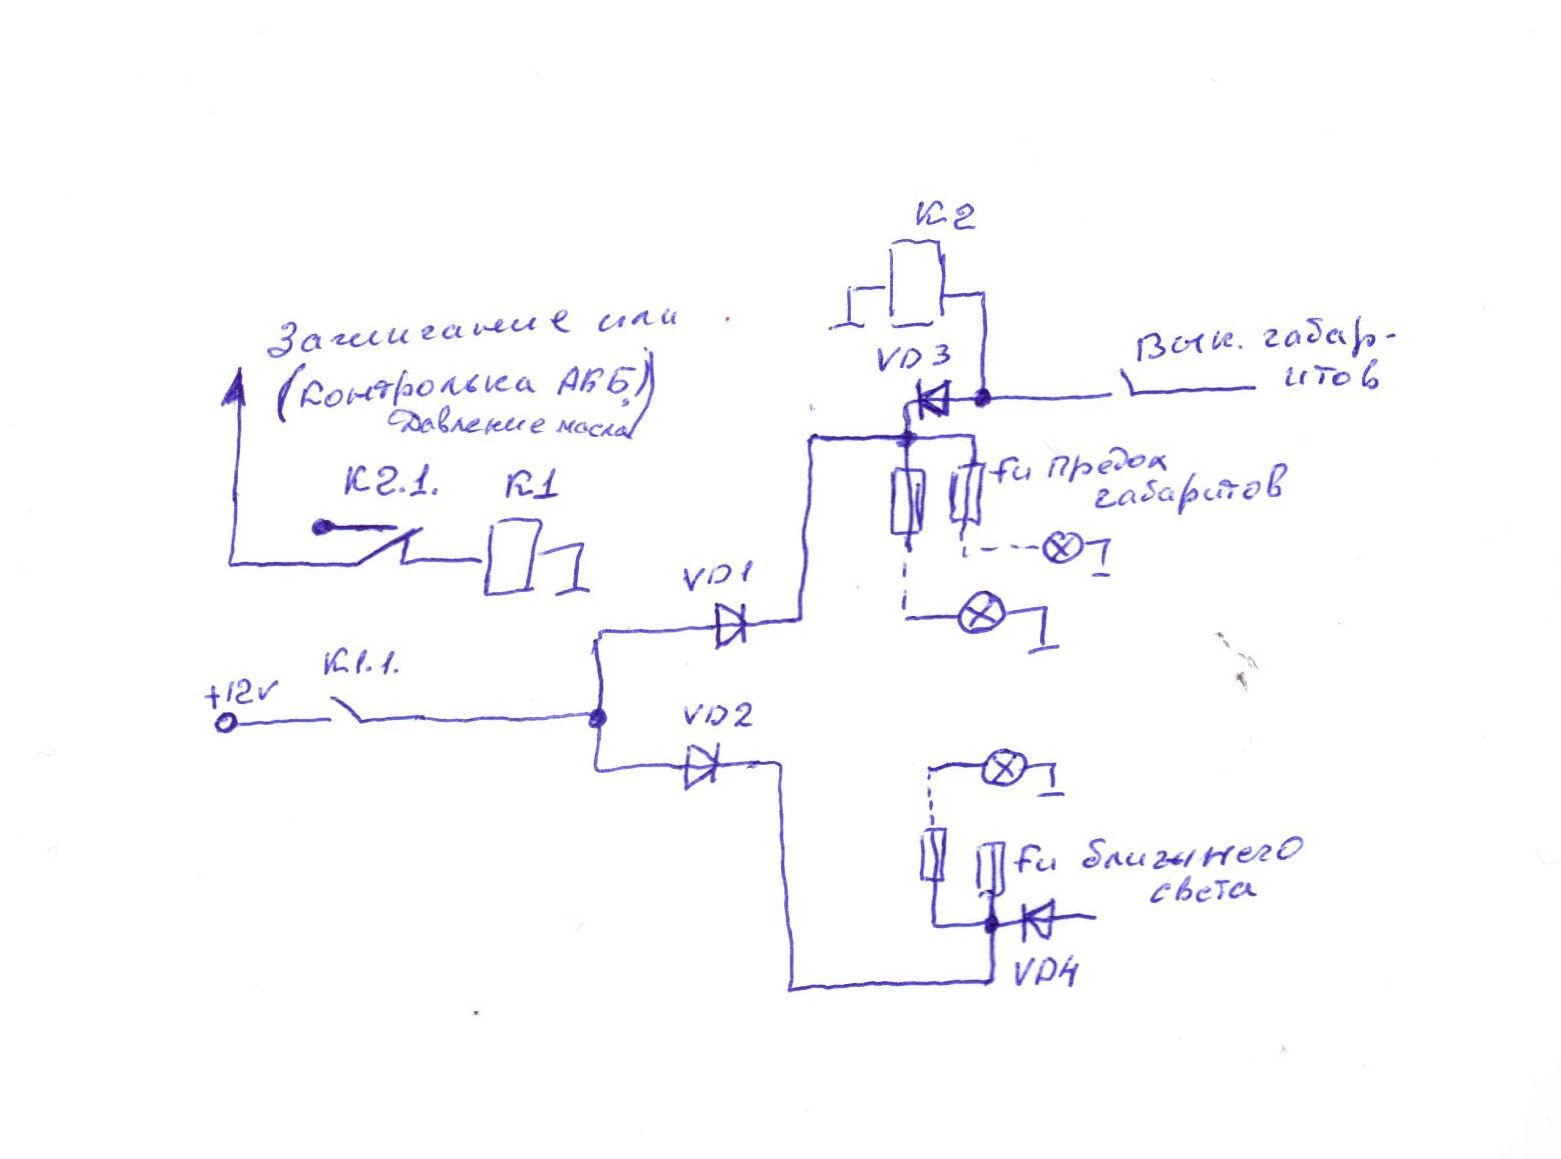 К2
Зажигание или
(Контролька АКБ,)
Давление масла
VD3
Вык. габар-
итов
К2.1.
К1
Fu предох
габаритов
VD1
К1.1.
+12v
VD2
Fu ближнего
света
VD4